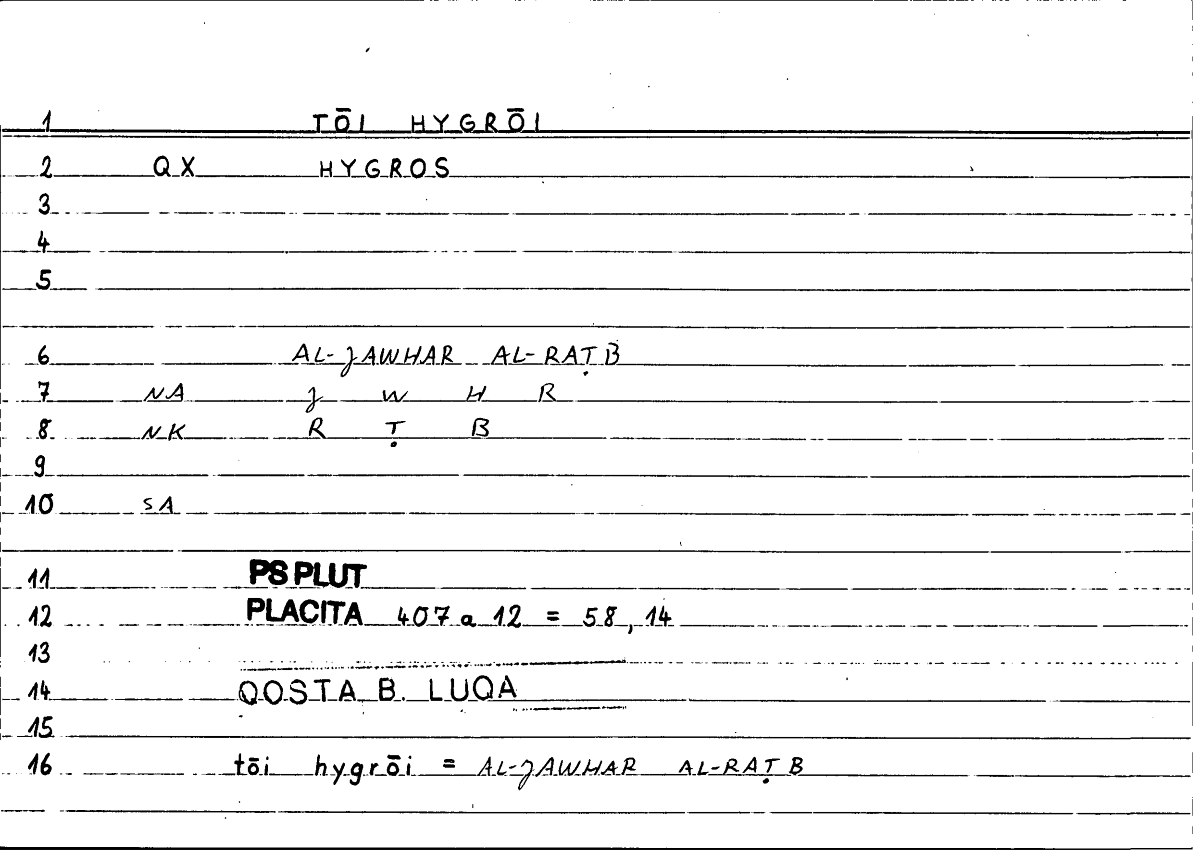 1 TŌI HYGRŌI
2 QX HYGROS
3
4
5
6 AL-JAWHAR AL-RAṬB
7 NA J W H R
8 NK R Ṭ B
9
10 SA
11 PS PLUT
12 PLACITA 407 a 12 = 58, 14
13
14 QOSTA B. LUQA
15
16 tōi hygrōi = AL-JAWHAR AL-RAṬB